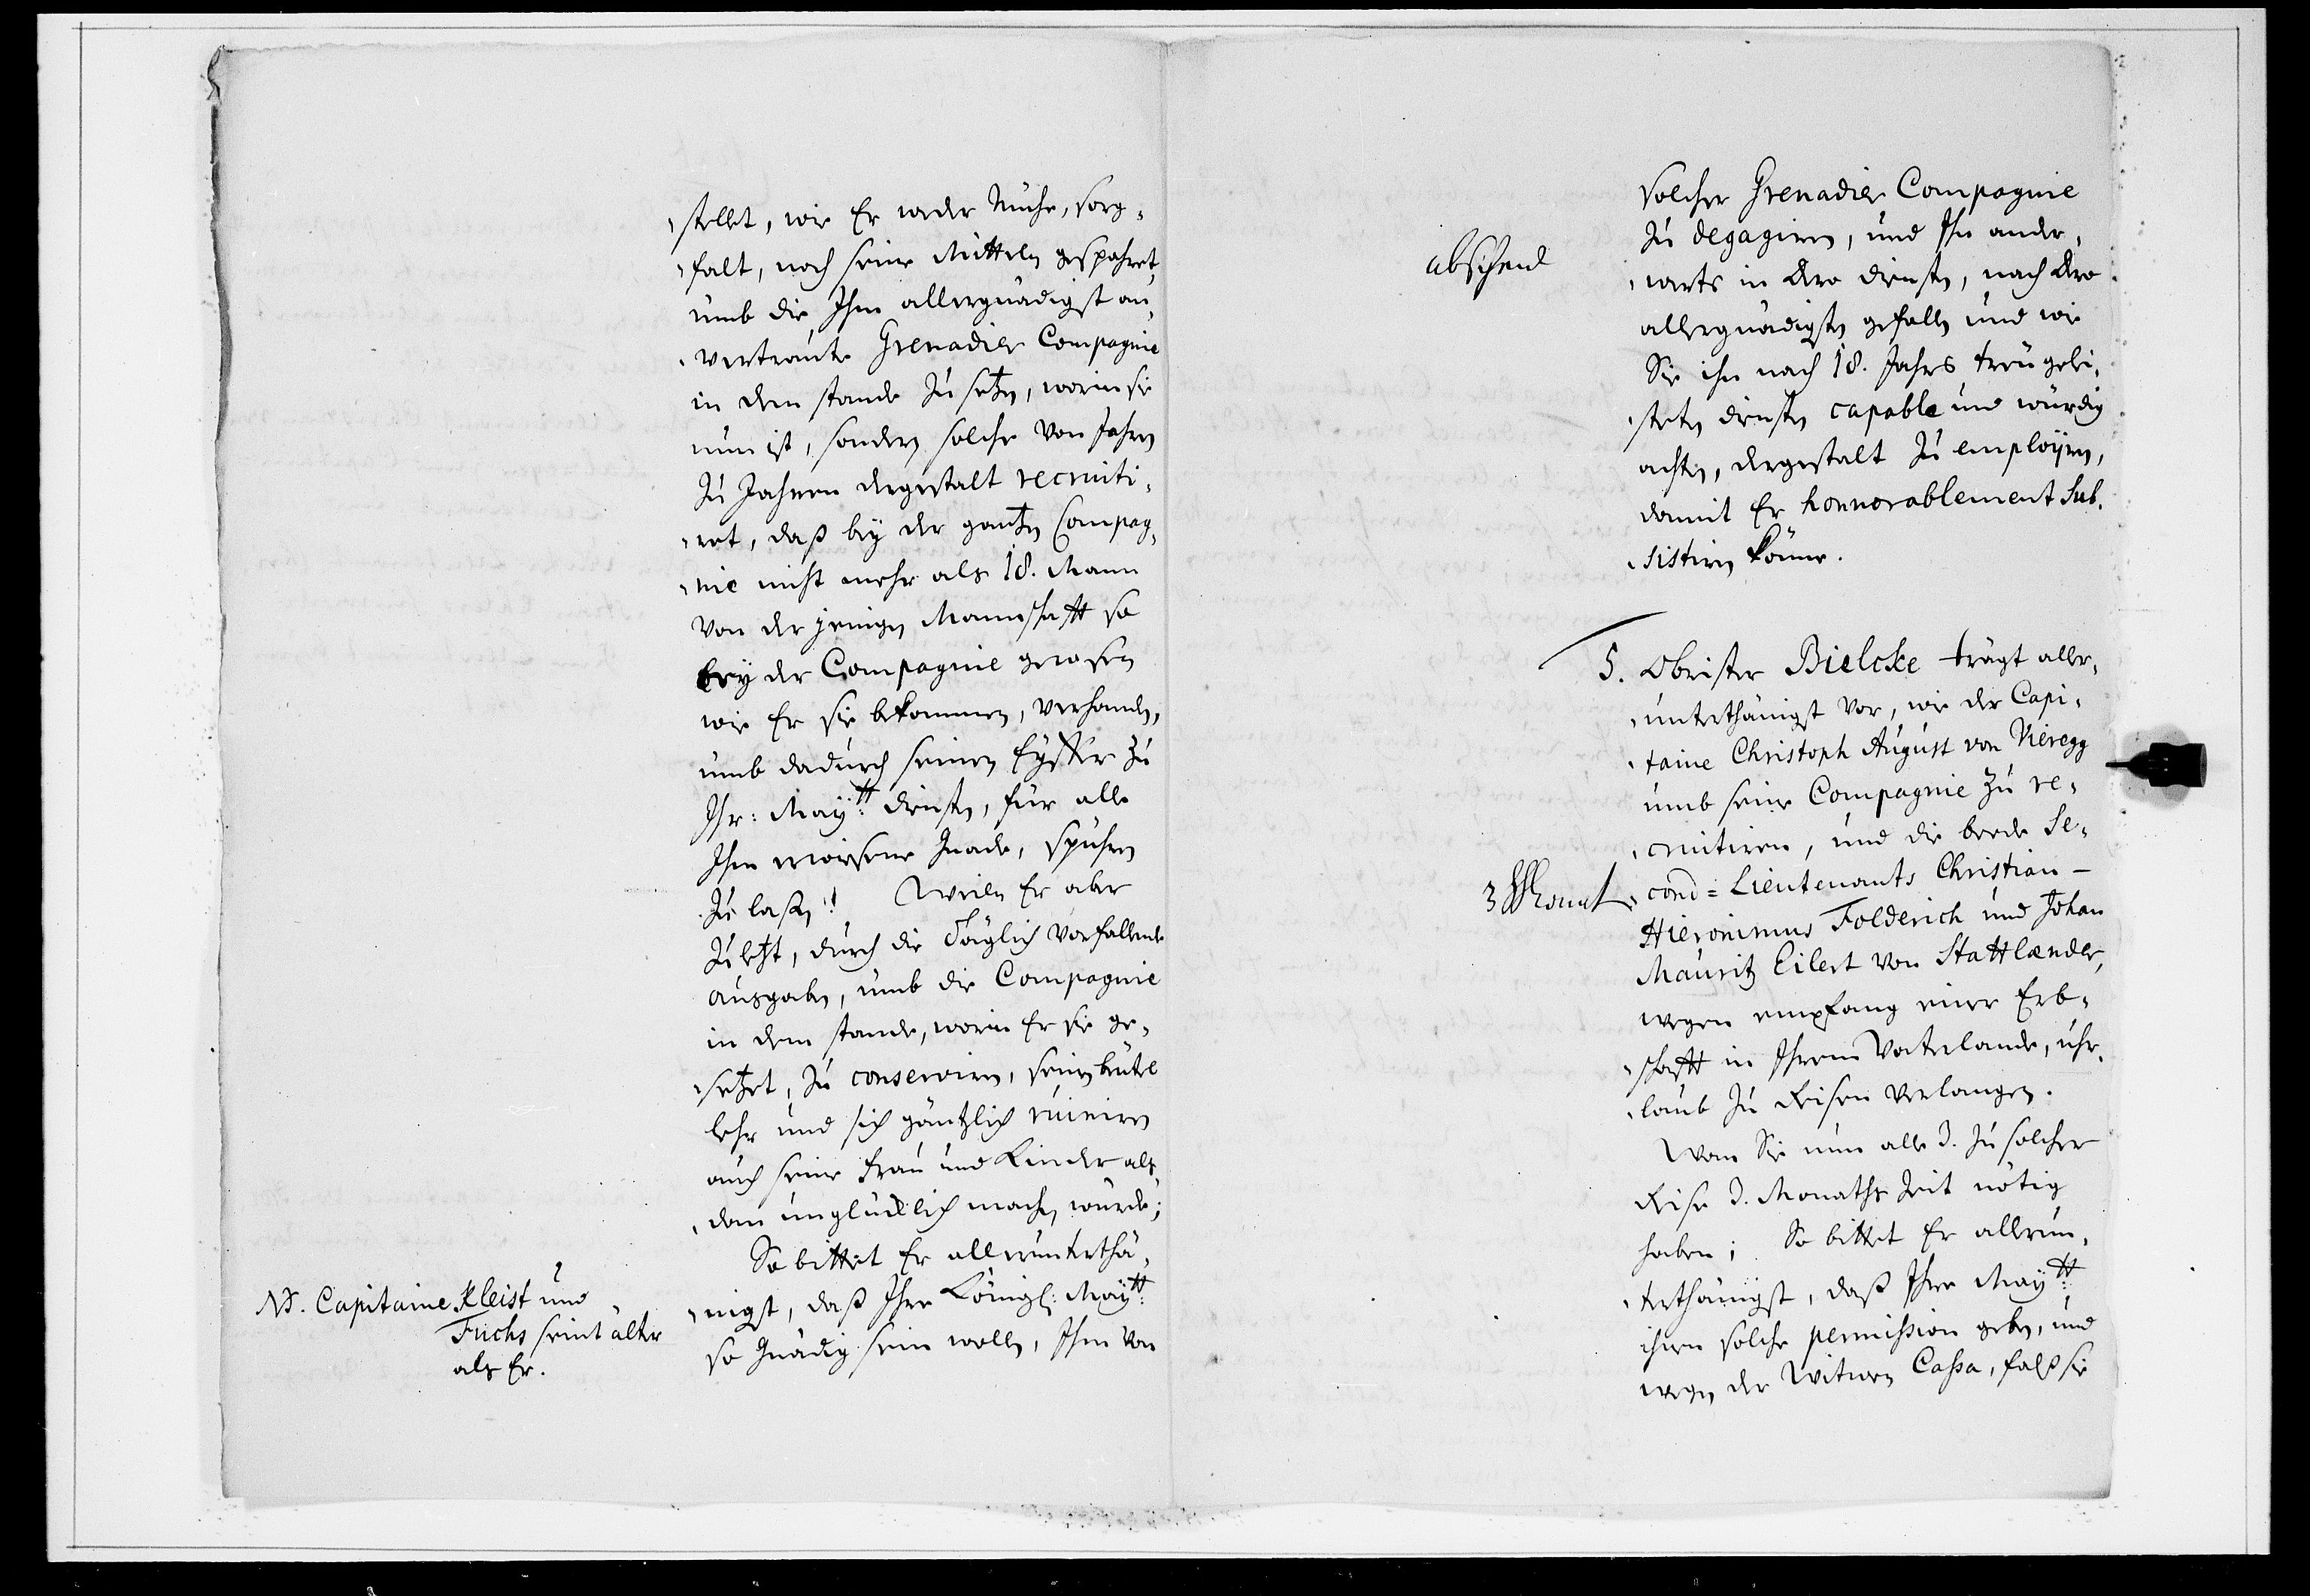 stellet, wie Er weder Mühe, sorg-
falt, noch seine Mitteln gespahret,
umb die Ihm allergnädigst an-
vertraute Grenadier Compagnie
in dem stande zu setzen, worin sie
nun ist, sondern solche von Jahren
zu Jahren dergestalt recruiti-
ret, daß bey der gantzen Compag-
nie nicht mehr als 18. Mann
von der jenigen Mannschafft so
bey der Compagnie gewesen
wie Er sie bekommen, verhanden,
umb dadurch seinen Eyffer zu
Ihr: Maytt: diensten, für alle
Ihm erwiesene Gnade, spühren
zu laßen! Weilen Er aber
zuletzt, durch die Täglich vorfallende
ausgaben, umb die Compagnie
in dem stande, worin Er sie ge-
setzet, zu conserviren, seinen beutel
lehr und sich gäntzlich ruiniren
auch seine Frau und Kinder als
dan unglücklich machen würde;
So bittet Er allerunterthä-
nigst, daß Ihre Königl: Maytt:
so Gnädig sein wollen, Ihm von
NB. Capitaine Kleist und
Fuchs seint älter
als Er.
solcher Grenadier Compagnie
zu degagiren, und Ihn ander-
warts in Dero diensten, nach Dero
allergnädigsten gefallen und wie
Sie ihn nach 18. Jahrs treu gelei-
steten diensten capable und würdig
achten, dergestalt zu employren,
damit Er honnorablement sub-
sistiren könne.
abscheid
5. Obrister Bielcke trägt aller-
unterthänigst vor, wie der Capi-
taine Christoph August von Vieregg
umb seine Compagnie zu re-
cruitiren, und die beede Se-
cond-Lieutenants Christian
Hieronimus Folderich und Johan
Mauritz Eilert von Stattlænder,
wegen empfang einer Erb-
schafft in Ihrem Vaterlande, uhr-
laub zu Reisen verlangen.
3 Monat
Wan Sie nun alle 3. zu solcher
Reise 3. Monaths Zeit nötig
haben; So bittet Er allerun-
terthänigst, daß Ihre Maytt:
ihnen solche permission geben, und
wegen der Witwen Cassa, falß sie